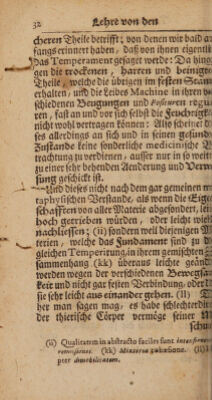 32 Lehre von den
cheren Theile betrifft; von denen wir bald an-
fangs erinnert haben, daß von ihnen eigentl
das Temperament gesaget werde: Da hinge
gen die trockenen, harten und beinigten
Theile, welche die übrigen im festen Stande
erhalten, und die Leibes Machine in ihren ver
schiedenen Beugungen und Posituren regie
ren, fast an und vor sich selbst die Feuchtigkeit
nicht wohl vertragen können: Also scheinet di
es allerdings an sich und in seinen gesunden
Zustande keine sonderliche medicinische
trachtung zu verdienen, ausser nur in so weit
zu einer sehr behenden Aenderung und Verwe
sung geschickt ist.
Und dieses nicht nach dem gar gemeinen m
taphysischen Verstande, als wenn die Eigen
schafften von aller Materie abgesondert, leicht
hoch getrieben würden, oder leicht wieder
nachliessen; (ii) sondern weil diejenigen Ma
terien, welche das Fundament sind zu d
gleichen Temperirung, in ihrem gemischten
sammenhang (kk) überaus leichte geändert
werden wegen der verschiedenen Bewegsam
keit und nicht gar festen Verbindung, oder da
sie sehr leicht aus einander gehen. (ll)
her man sagen mag, es habe schlechterdings
der thierische Cörper vermöge seiner
schung
(ii) Qualitatem in abstracto faciles sunt
(kk)